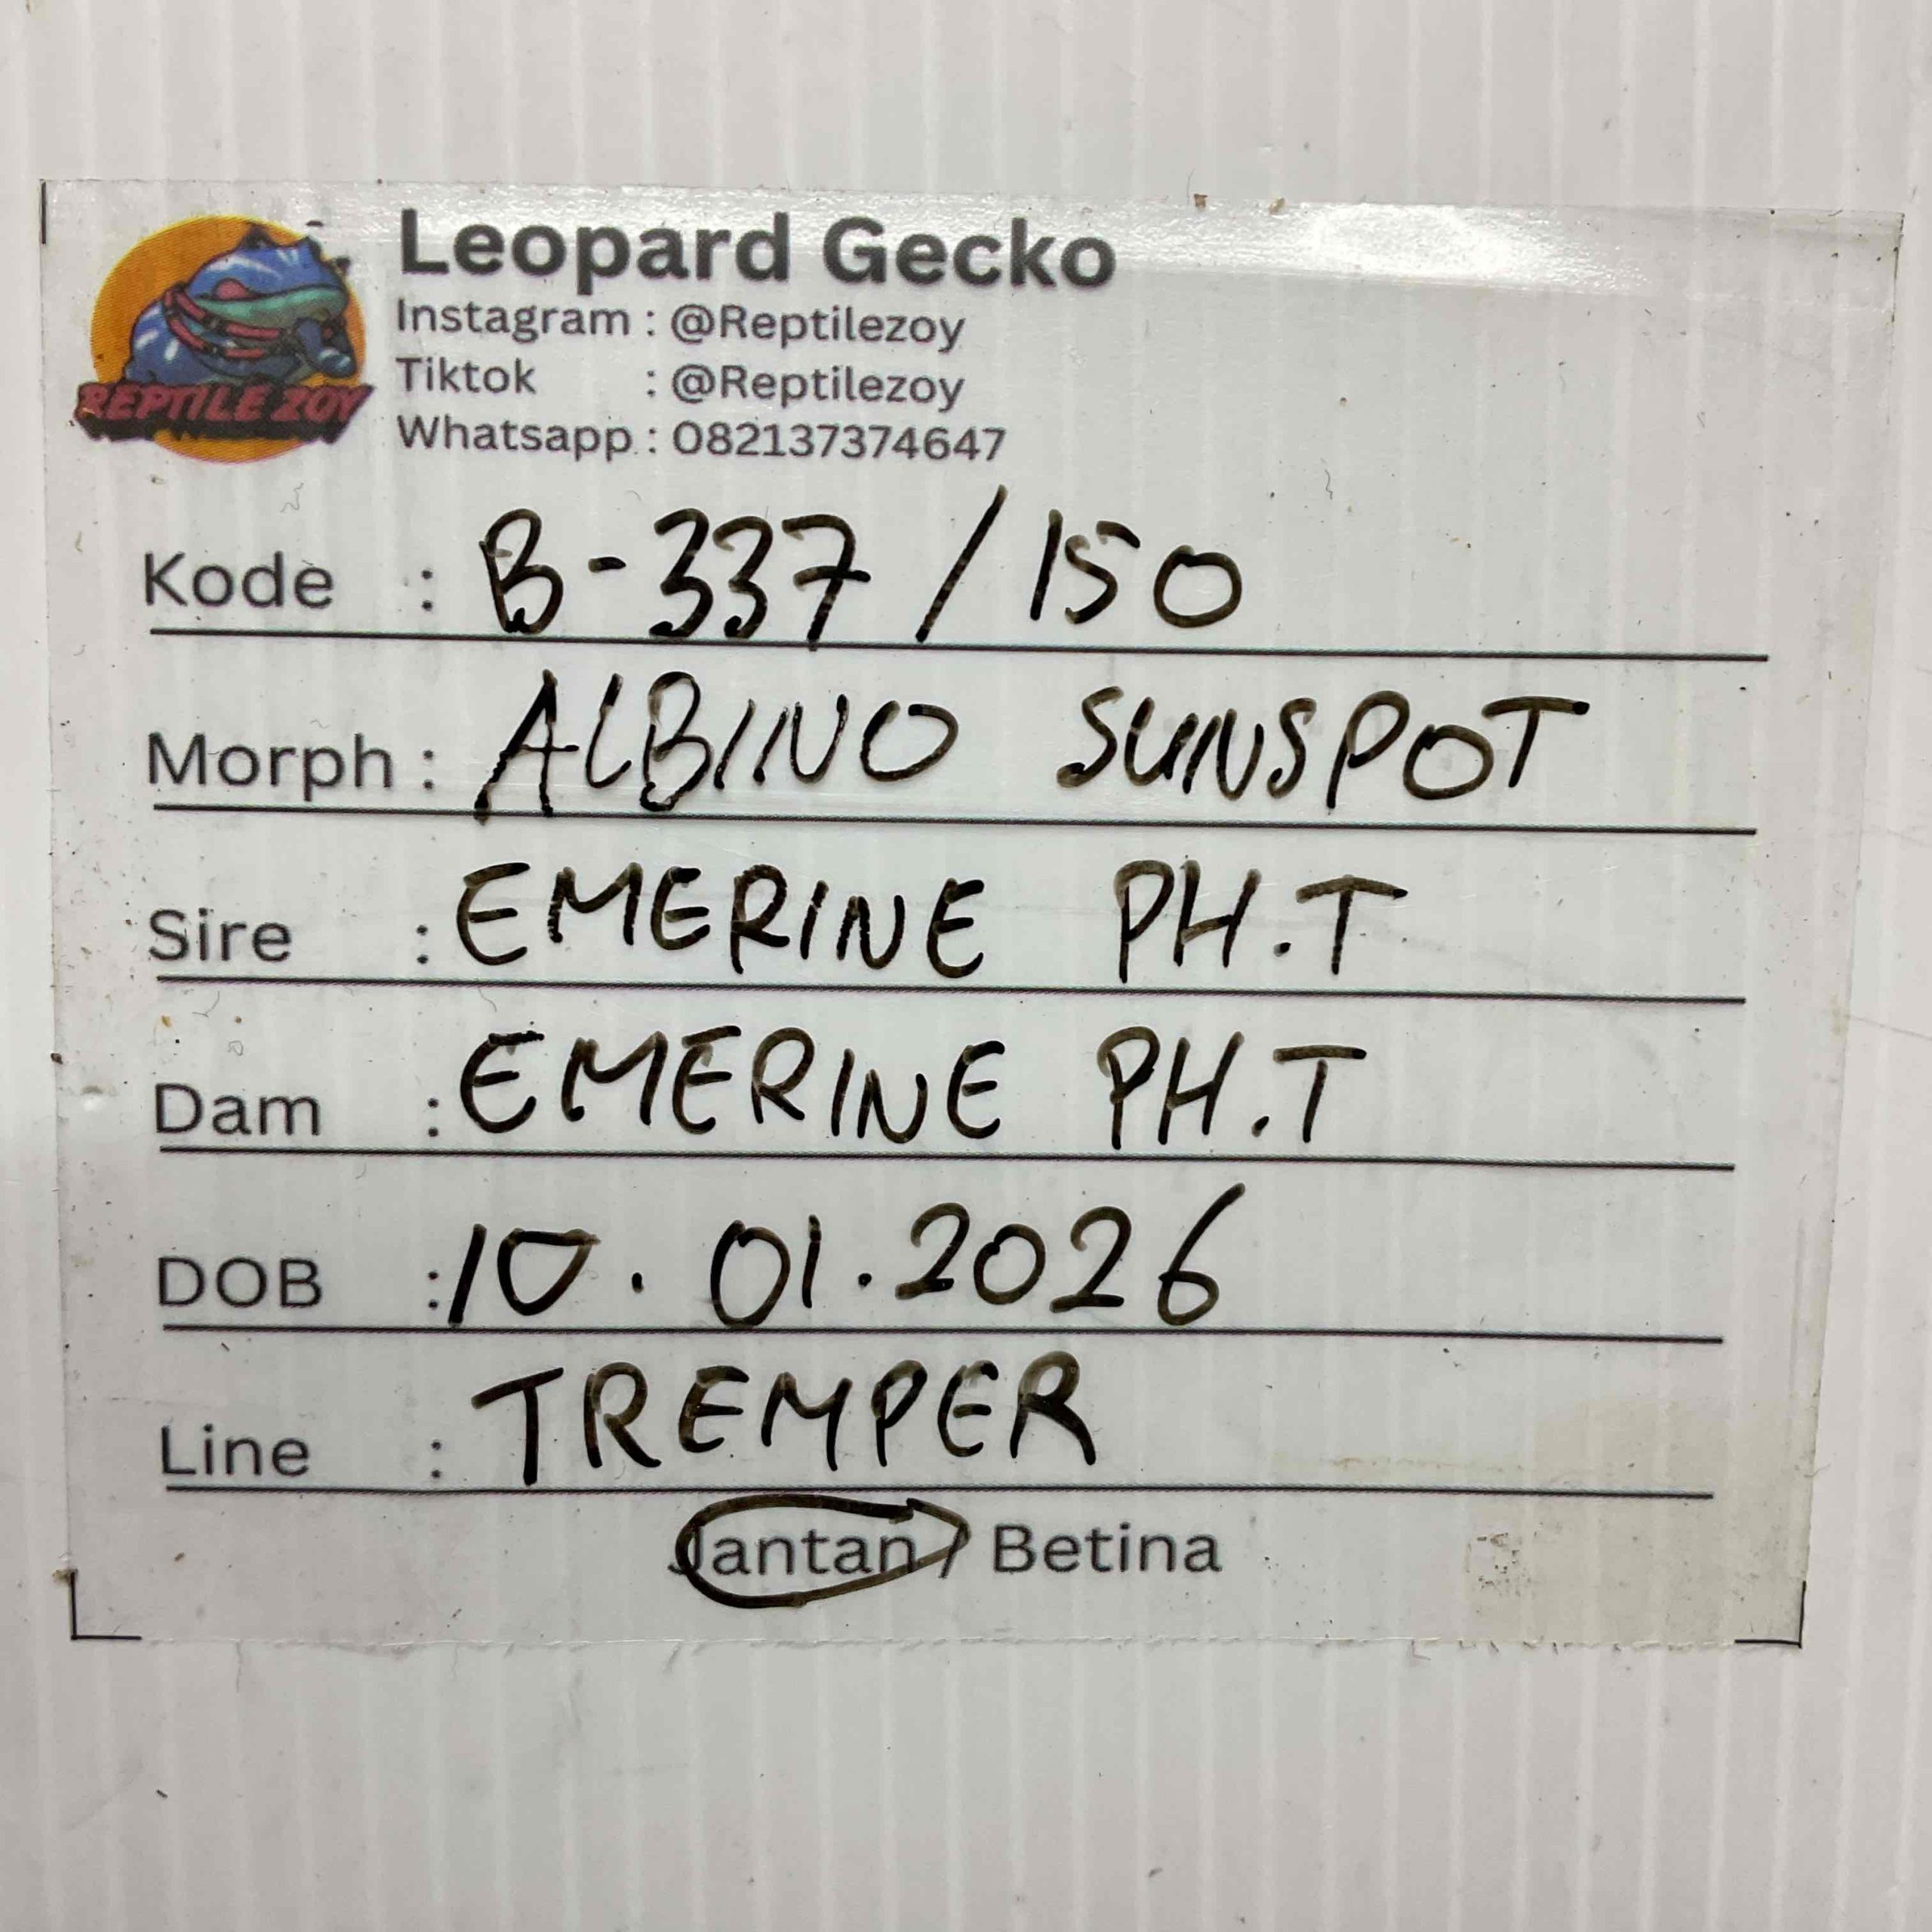 Leopard Gecko
Instagram : @Reptilezoy
Tiktok : @Reptilezoy
Whatsapp : 082137374647
REPTILE ZOY
Kode : B-337/150
Morph : ALBINO SUNSPOT
Sire : EMERINE PH.T
Dam : EMERINE PH.T
DOB : 10.01.2026
Line : TREMPER
Jantan / Betina